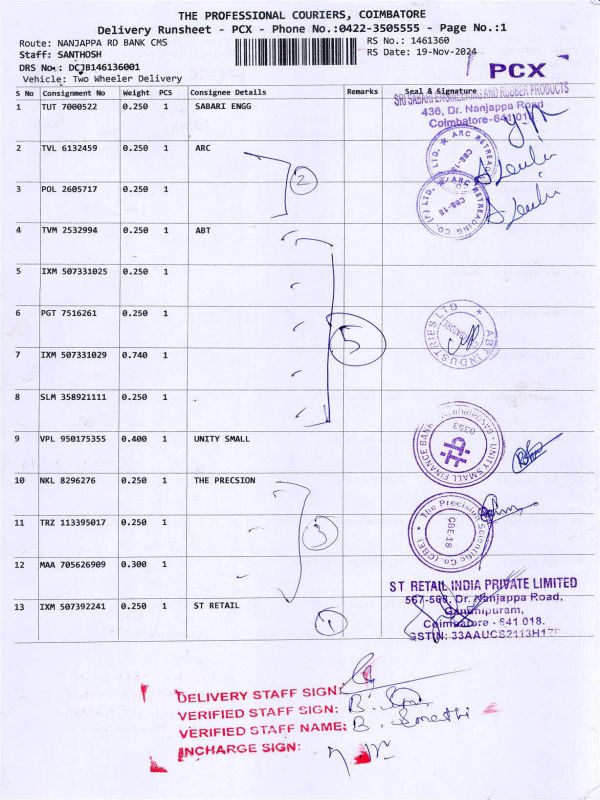 THE PROFESSIONAL COURIERS, COIMBATORE
Delivery Runsheet - PCX - Phone No.:0422-3505555 - Page No.:1
Route: NANJAPPA RD BANK CMS
RS No.: 1461360
Staff: SANTHOSH
RS Date: 19-Nov-2024
DRS No.: DCJB146136001
Vehicle: Two Wheeler Delivery
PCX
S No Consignment No Weight PCS Consignee Details Remarks Seal & Signature
1 TUT 7000522 0.250 1 SABARI ENGG
SRI SABARI ENGINEERING AND RUBBER PRODUCTS
436, Dr. Nanjappa Road
Coimbatore-641 018
2 TVL 6132459 0.250 1 ARC
2
3 POL 2605717 0.250 1
ARC RETREADING CO. (P) LTD.
CBE-18
4 TVM 2532994 0.250 1 ABT
5 IXM 507331025 0.250 1
6 PGT 7516261 0.250 1
ABT INDUSTRIES LTD
5
7 IXM 507331029 0.740 1
8 SLM 358921111 0.250 1
9 VPL 950175355 0.400 1 UNITY SMALL
UNITY SMALL FINANCE BANK
0353
10 NKL 8296276 0.250 1 THE PRECSION
The Precision Scientific Co. (CBE)
CBE-18
11 TRZ 113395017 0.250 1
3
12 MAA 705626909 0.300 1
13 IXM 507392241 0.250 1 ST RETAIL
1
ST RETAIL INDIA PRIVATE LIMITED
567-568, Dr. Nanjappa Road,
Gandhipuram,
Coimbatore - 641 018.
DELIVERY STAFF SIGN:
VERIFIED STAFF SIGN:
VERIFIED STAFF NAME: B.
INCHARGE SIGN: